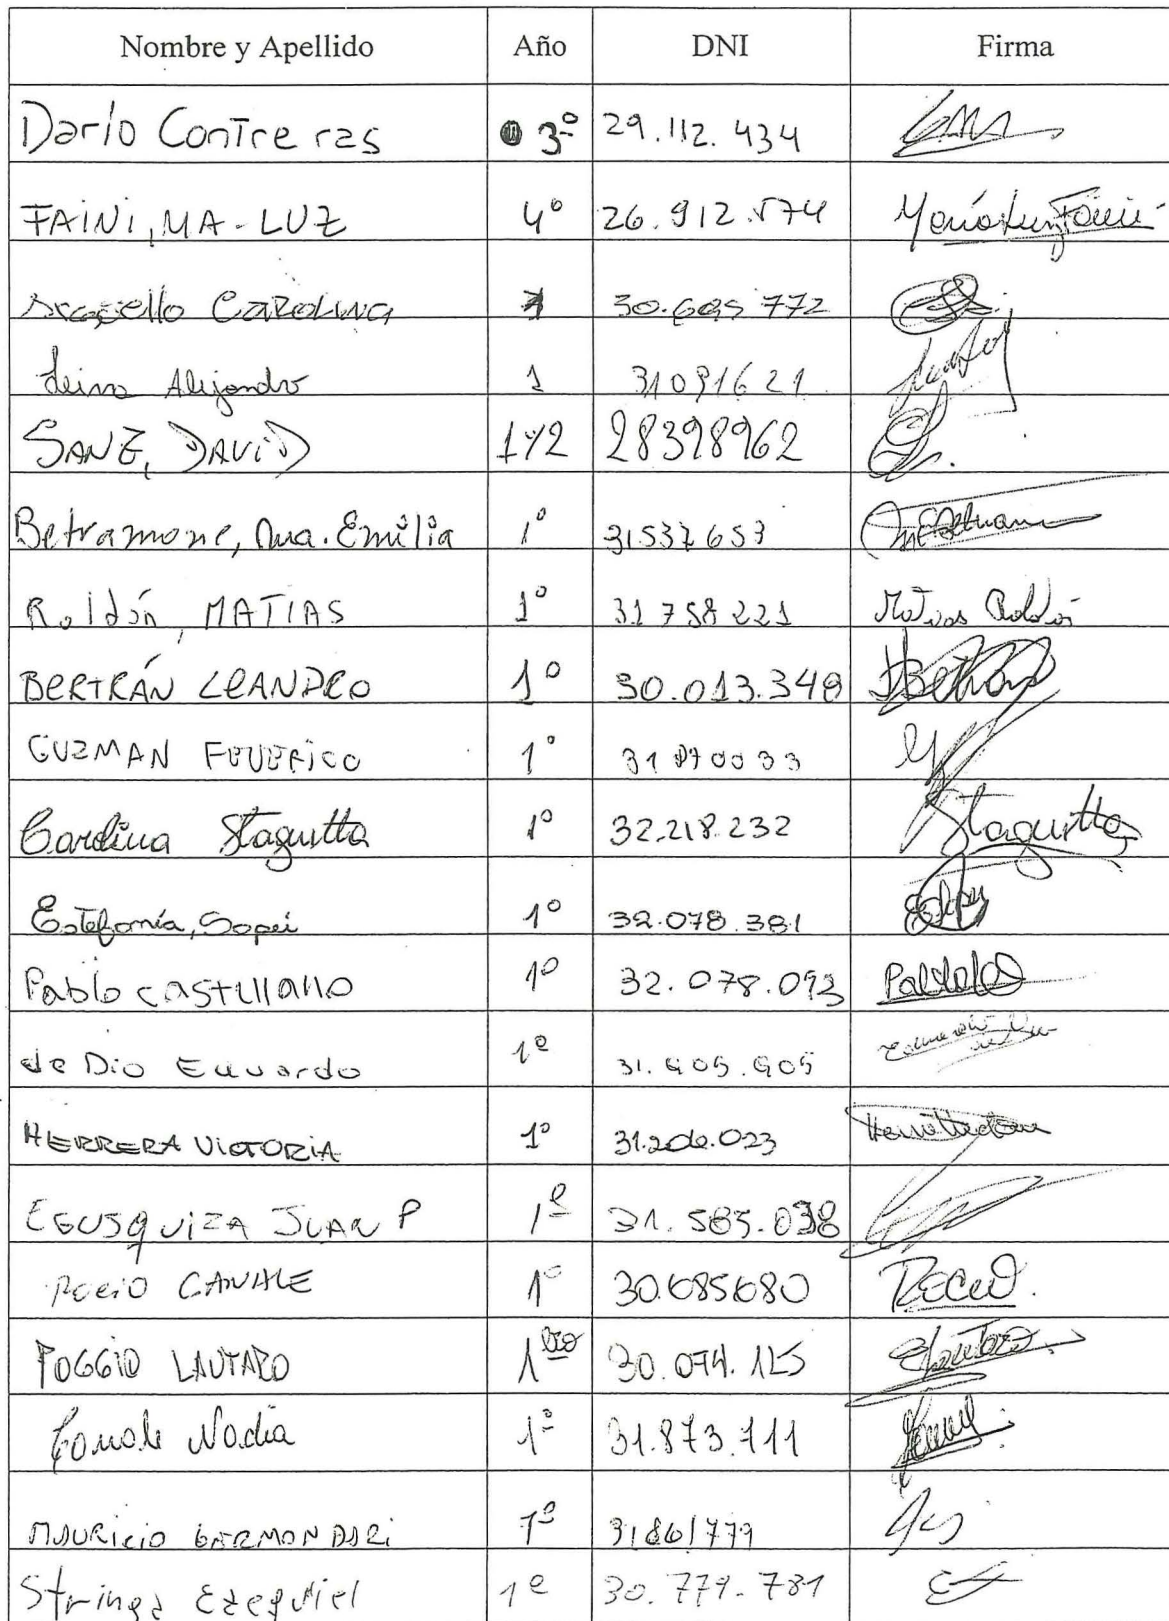 Nombre y Apellido Año DNI Firma
Darío Contreras 3º 29.112.434
FAINI, MA-LUZ 4º 26.912.574 María Luz Faini
Carolina 30.695 772
Leiva Alejandro 1 31091621
SANZ, DAVID 1y2 28398962
Betramone, Ma. Emilia 1º 31537653
Roldán, MATIAS 1º 31 758 221 Matias Roldán
BERTRÁN LEANDRO 1º 30.013.348
GUZMAN FEDERICO 1º 31 870033
Carolina Staguitta 1º 32.218.232 Staguitta
Estefanía, Sopei 1º 32.078.381
Pablo castellano 1º 32.078.093
de Dio Eduardo 1º 31.905.905
HERRERA VICTORIA 1º 31.206.023
EGUSQUIZA JUAN P 1º 31.585.038
ROCIO CANALE 1º 30.685680 ROCIO.
POGGIO LAUTARO 1ero 30.074.125 Lautaro
Nadia 1º 31.873.711
MAURICIO 1º 31861779
Stringa Ezequiel 1º 30.779.781